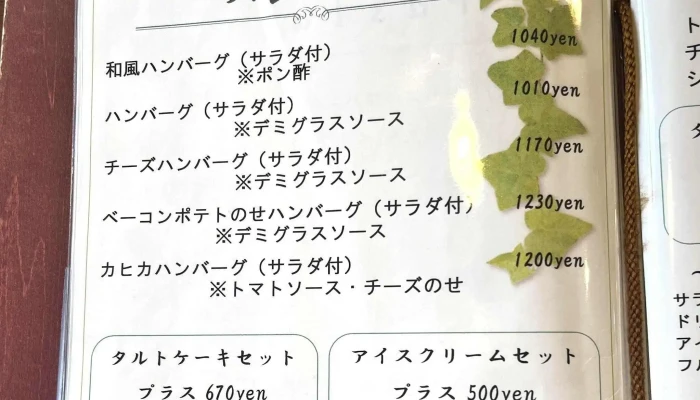 和風ハンバーグ（サラダ付） 1040yen
※ポン酢
ハンバーグ（サラダ付） 1010yen
※デミグラスソース
チーズハンバーグ（サラダ付） 1170yen
※デミグラスソース
ベーコンポテトのせハンバーグ（サラダ付） 1230yen
※デミグラスソース
カヒカハンバーグ（サラダ付） 1200yen
※トマトソース・チーズのせ
タルトケーキセット
プラス 670yen
アイスクリームセット
プラス 500yen